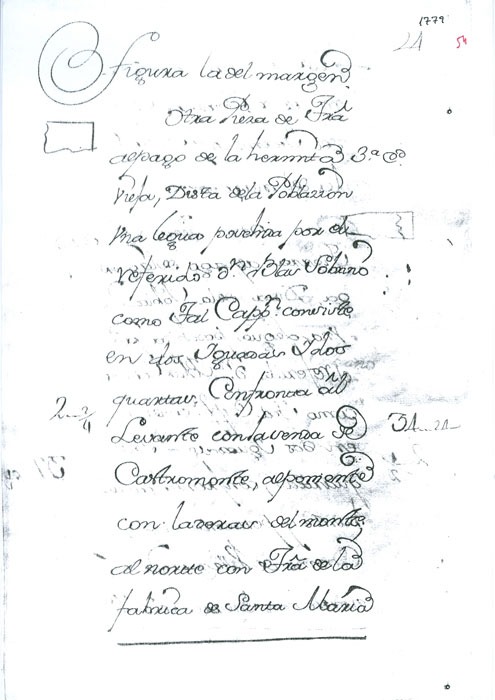 1779
24 54
figura la del margen.
Otra Pieza de Trã
al pago de la hermita 3.ª C.
Vieja, Dista de la Poblazion
Vna legua posehida por el
referido Dn Blas Sobrino
como Tal Cappn. consiste
en dos Yguadas Y dos
quartas, Confronta al
2 31
Levante con la senda De
Castromonte, al poniente
con laderas del monte
al norte con Trã de la
fabrica de Santa Maria